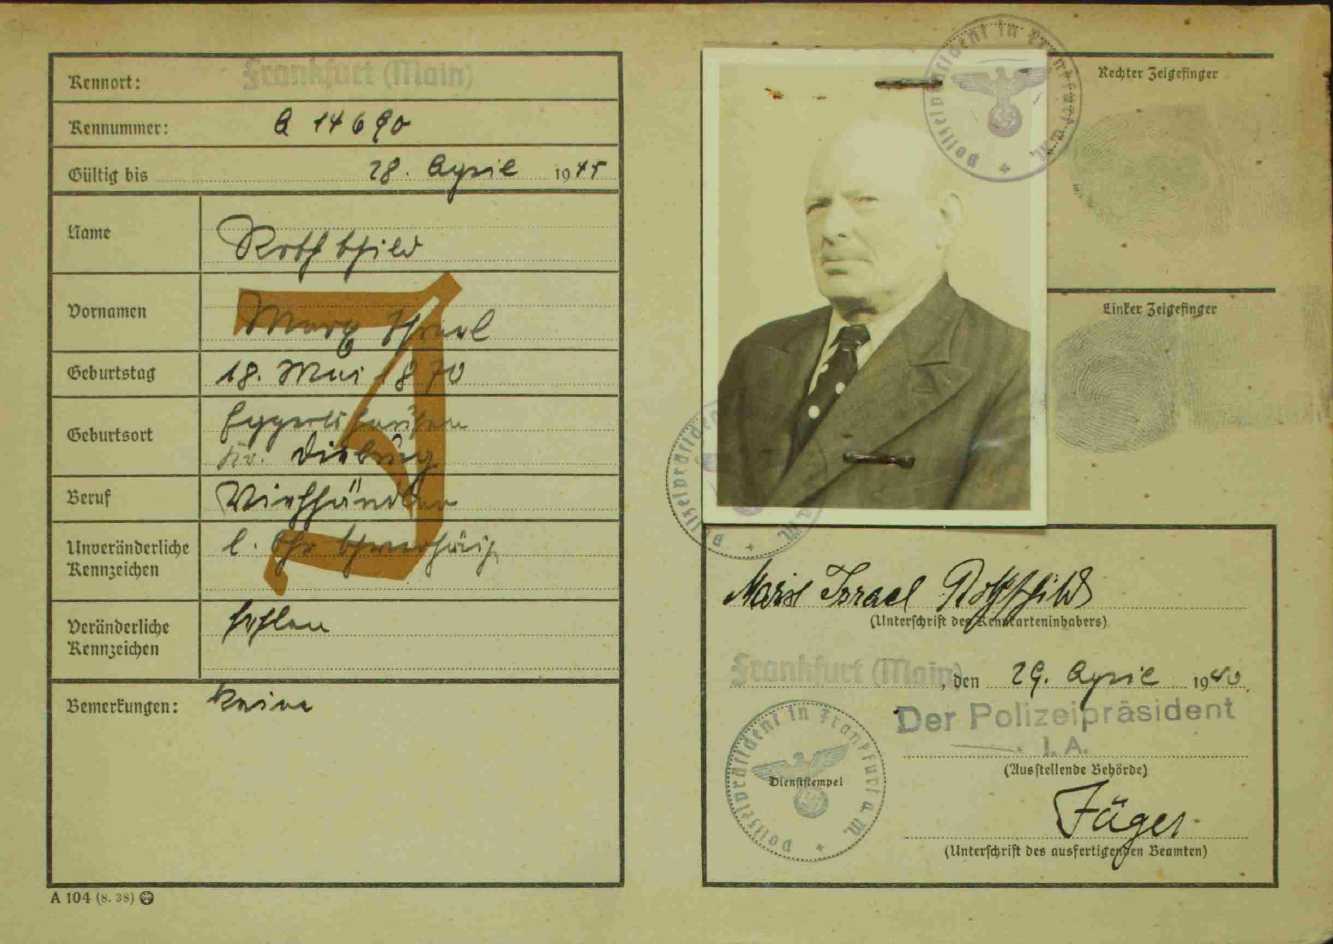 Kennort: Frankfurt (Main)
Kennummer: A 14690
Gültig bis 28. April 1945
Name Rothschild
Vornamen Marx Israel
J
Geburtstag 18. Mai 1870
Geburtsort
Kr. Dieburg
Beruf Viehhändler
Unveränderliche l. Ohr schwerhörig
Kennzeichen
Veränderliche fehlen
Kennzeichen
Bemerkungen: Keine
A 104 (8. 38)
Polizeipräsident in Frankfurt a.M.
Rechter Zeigefinger
Linker Zeigefinger
Polizeipräsident a.M.
Marx Israel Rothschild
(Unterschrift des Kennkarteninhabers)
Frankfurt (Main), den 29. April 1940.
Der Polizeipräsident
I. A.
(Ausstellende Behörde)
Polizeipräsident in Frankfurt a.M.
Dienststempel
Jäger
(Unterschrift des ausfertigenden Beamten)